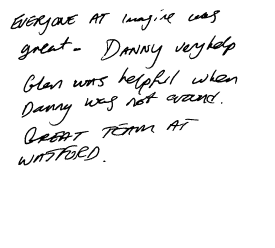 EVERYONE AT Imagine was
great - DANNY very help
Glen was helpful when
Danny was not around.
GREAT TEAM AT
WATFORD.